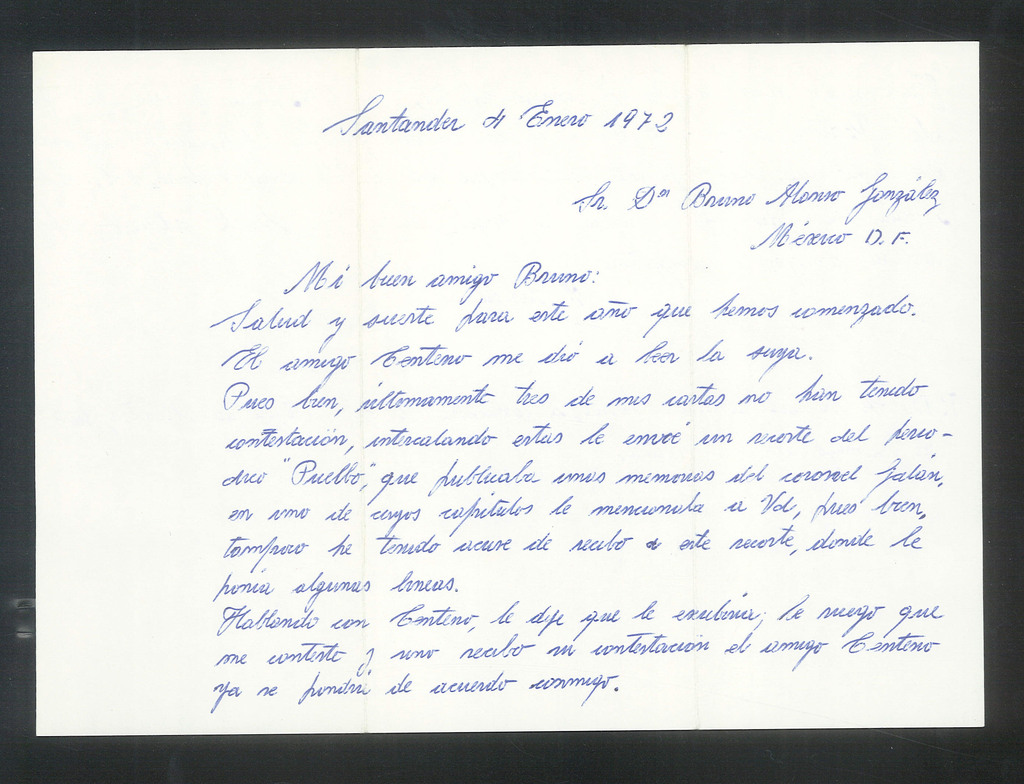 Santander 4 Enero 1972
Sr. Dⁿ Bruno Alonso González
México D.F.
Mi buen amigo Bruno:
Salud y suerte para este año que hemos comenzado.
El amigo Centeno me dió a leer la suya.
Pues bien, últimamente tres de mis cartas no han tenido
contestación, intercalando estas le envié un recorte del perio-
dico "Pueblo", que publicaba unas memorias del coronel Galán,
en uno de cuyos capítulos le mencionaba a Vd, pues bien,
tampoco he tenido acuse de recibo a este recorte, donde le
ponía algunas lineas.
Hablando con Centeno, le dije que le escribiría; le ruego que
me conteste y sino recibo su contestación el amigo Centeno
ya se pondrá de acuerdo conmigo.